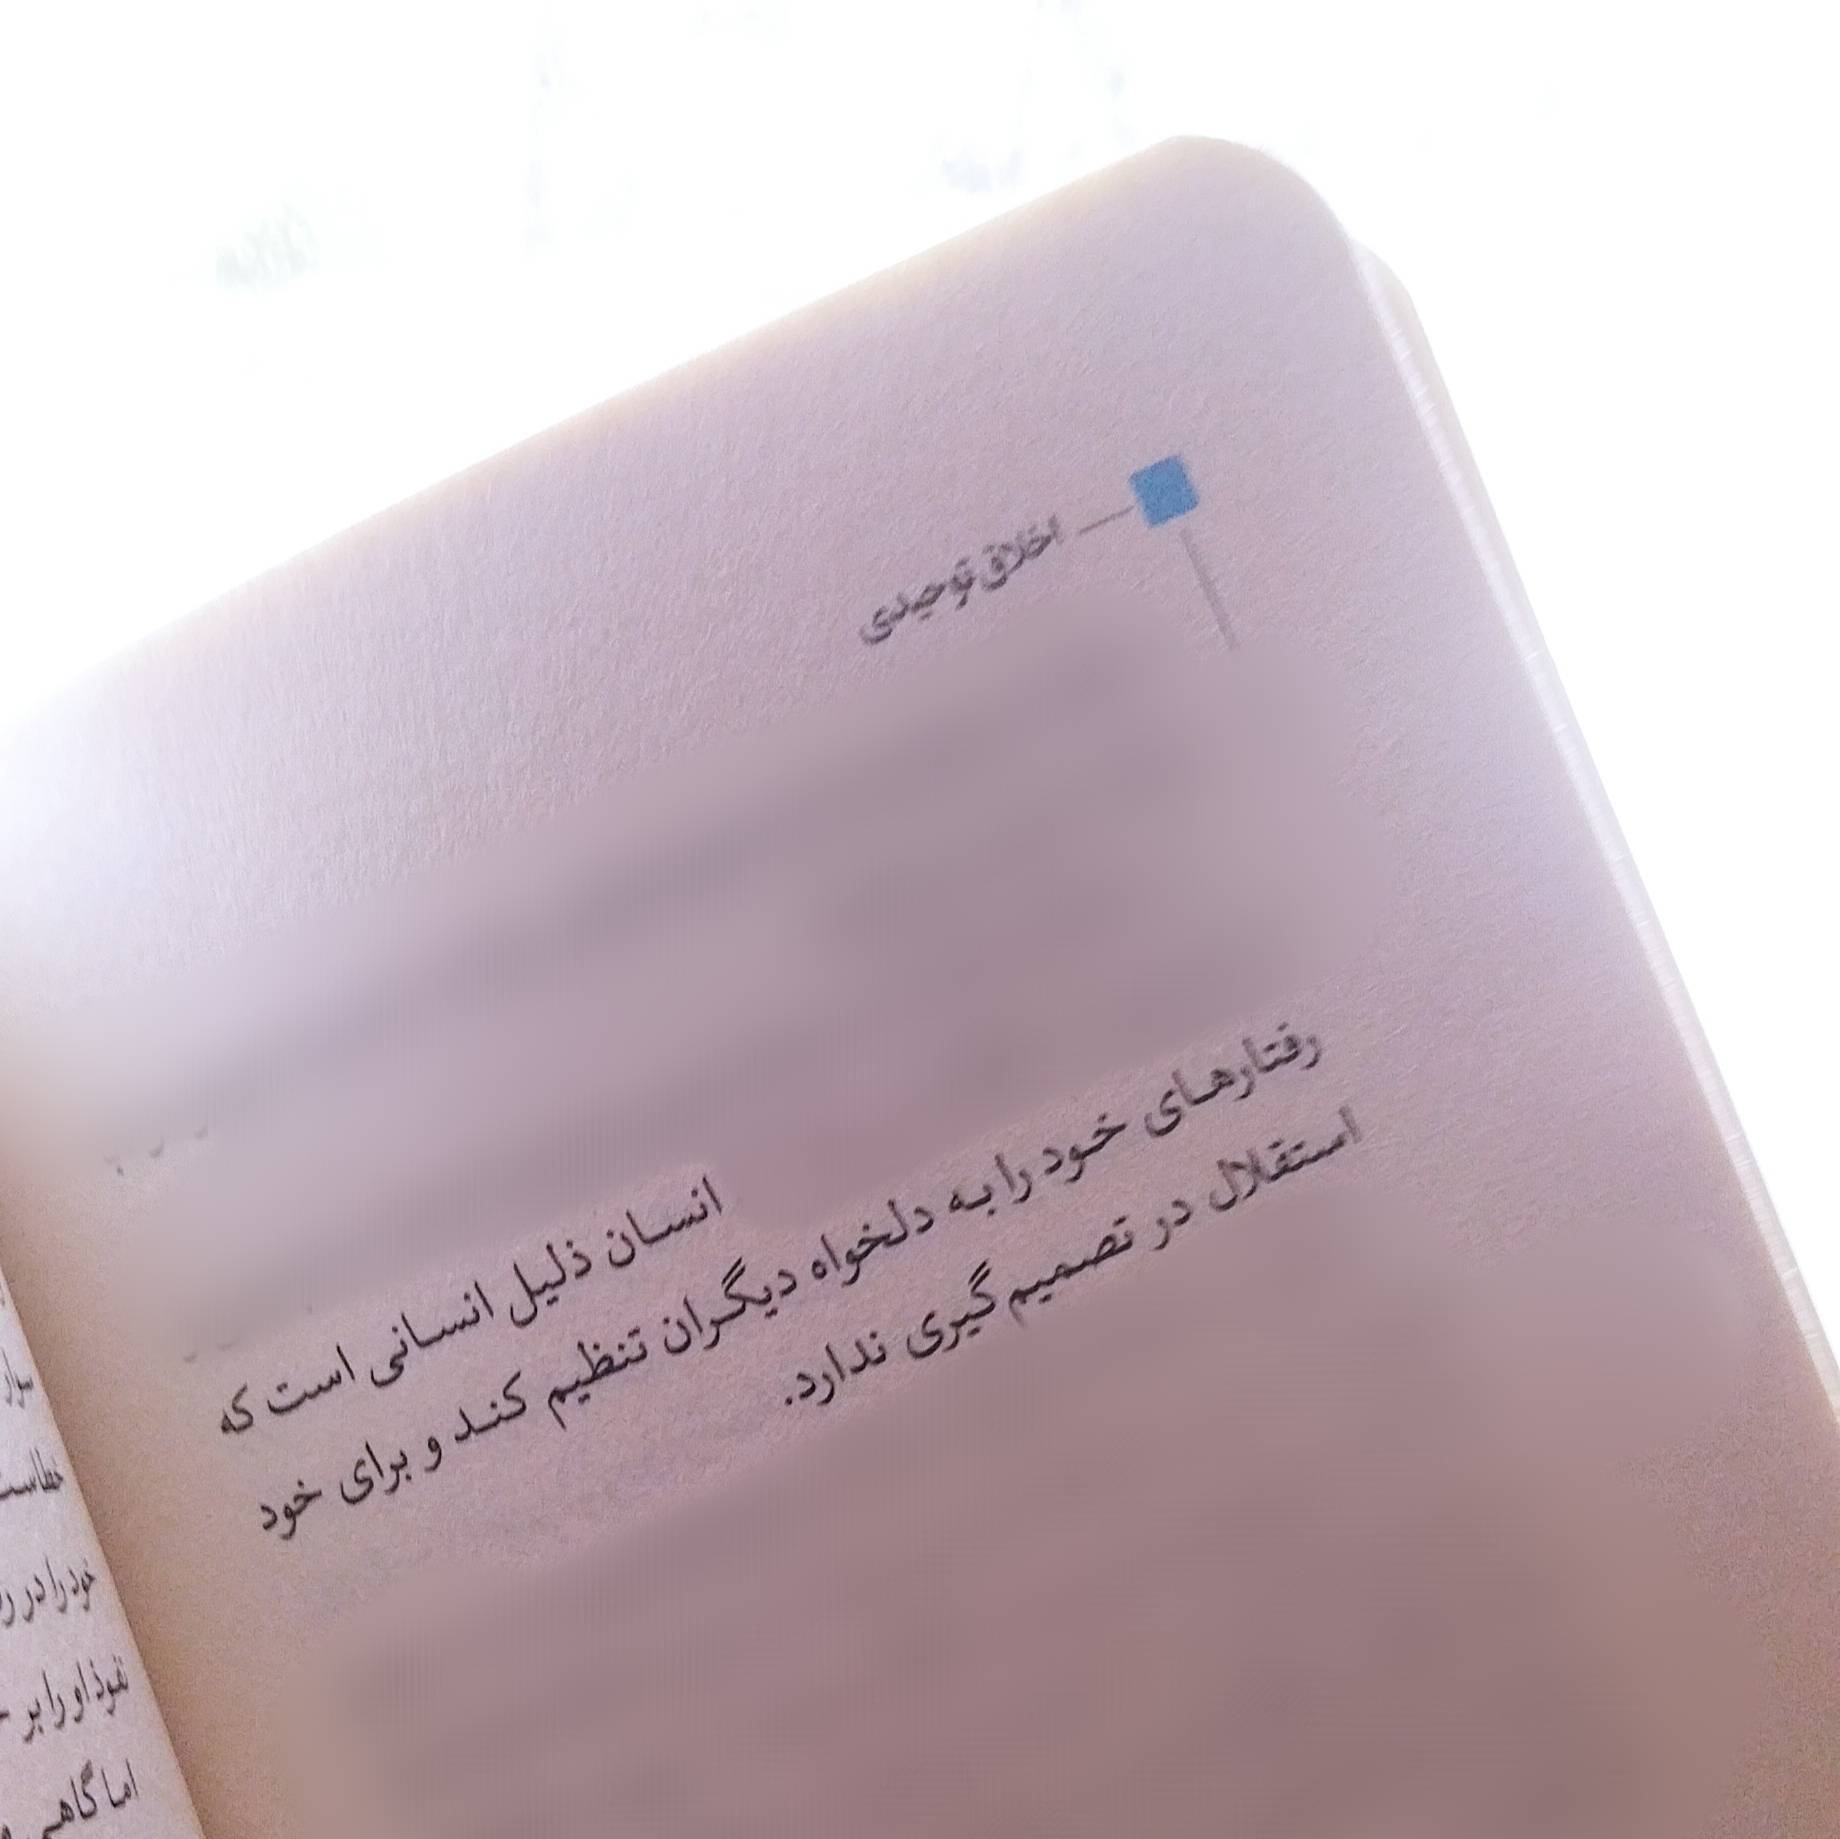 اخلاق توحیدی
انسان ذلیل انسانی است که
رفتارهای خود را به دلخواه دیگران تنظیم کند و برای خود
استقلال در تصمیم‌گیری ندارد.
خطاست
خود را در
نفوذ او را بر
اما گاهی